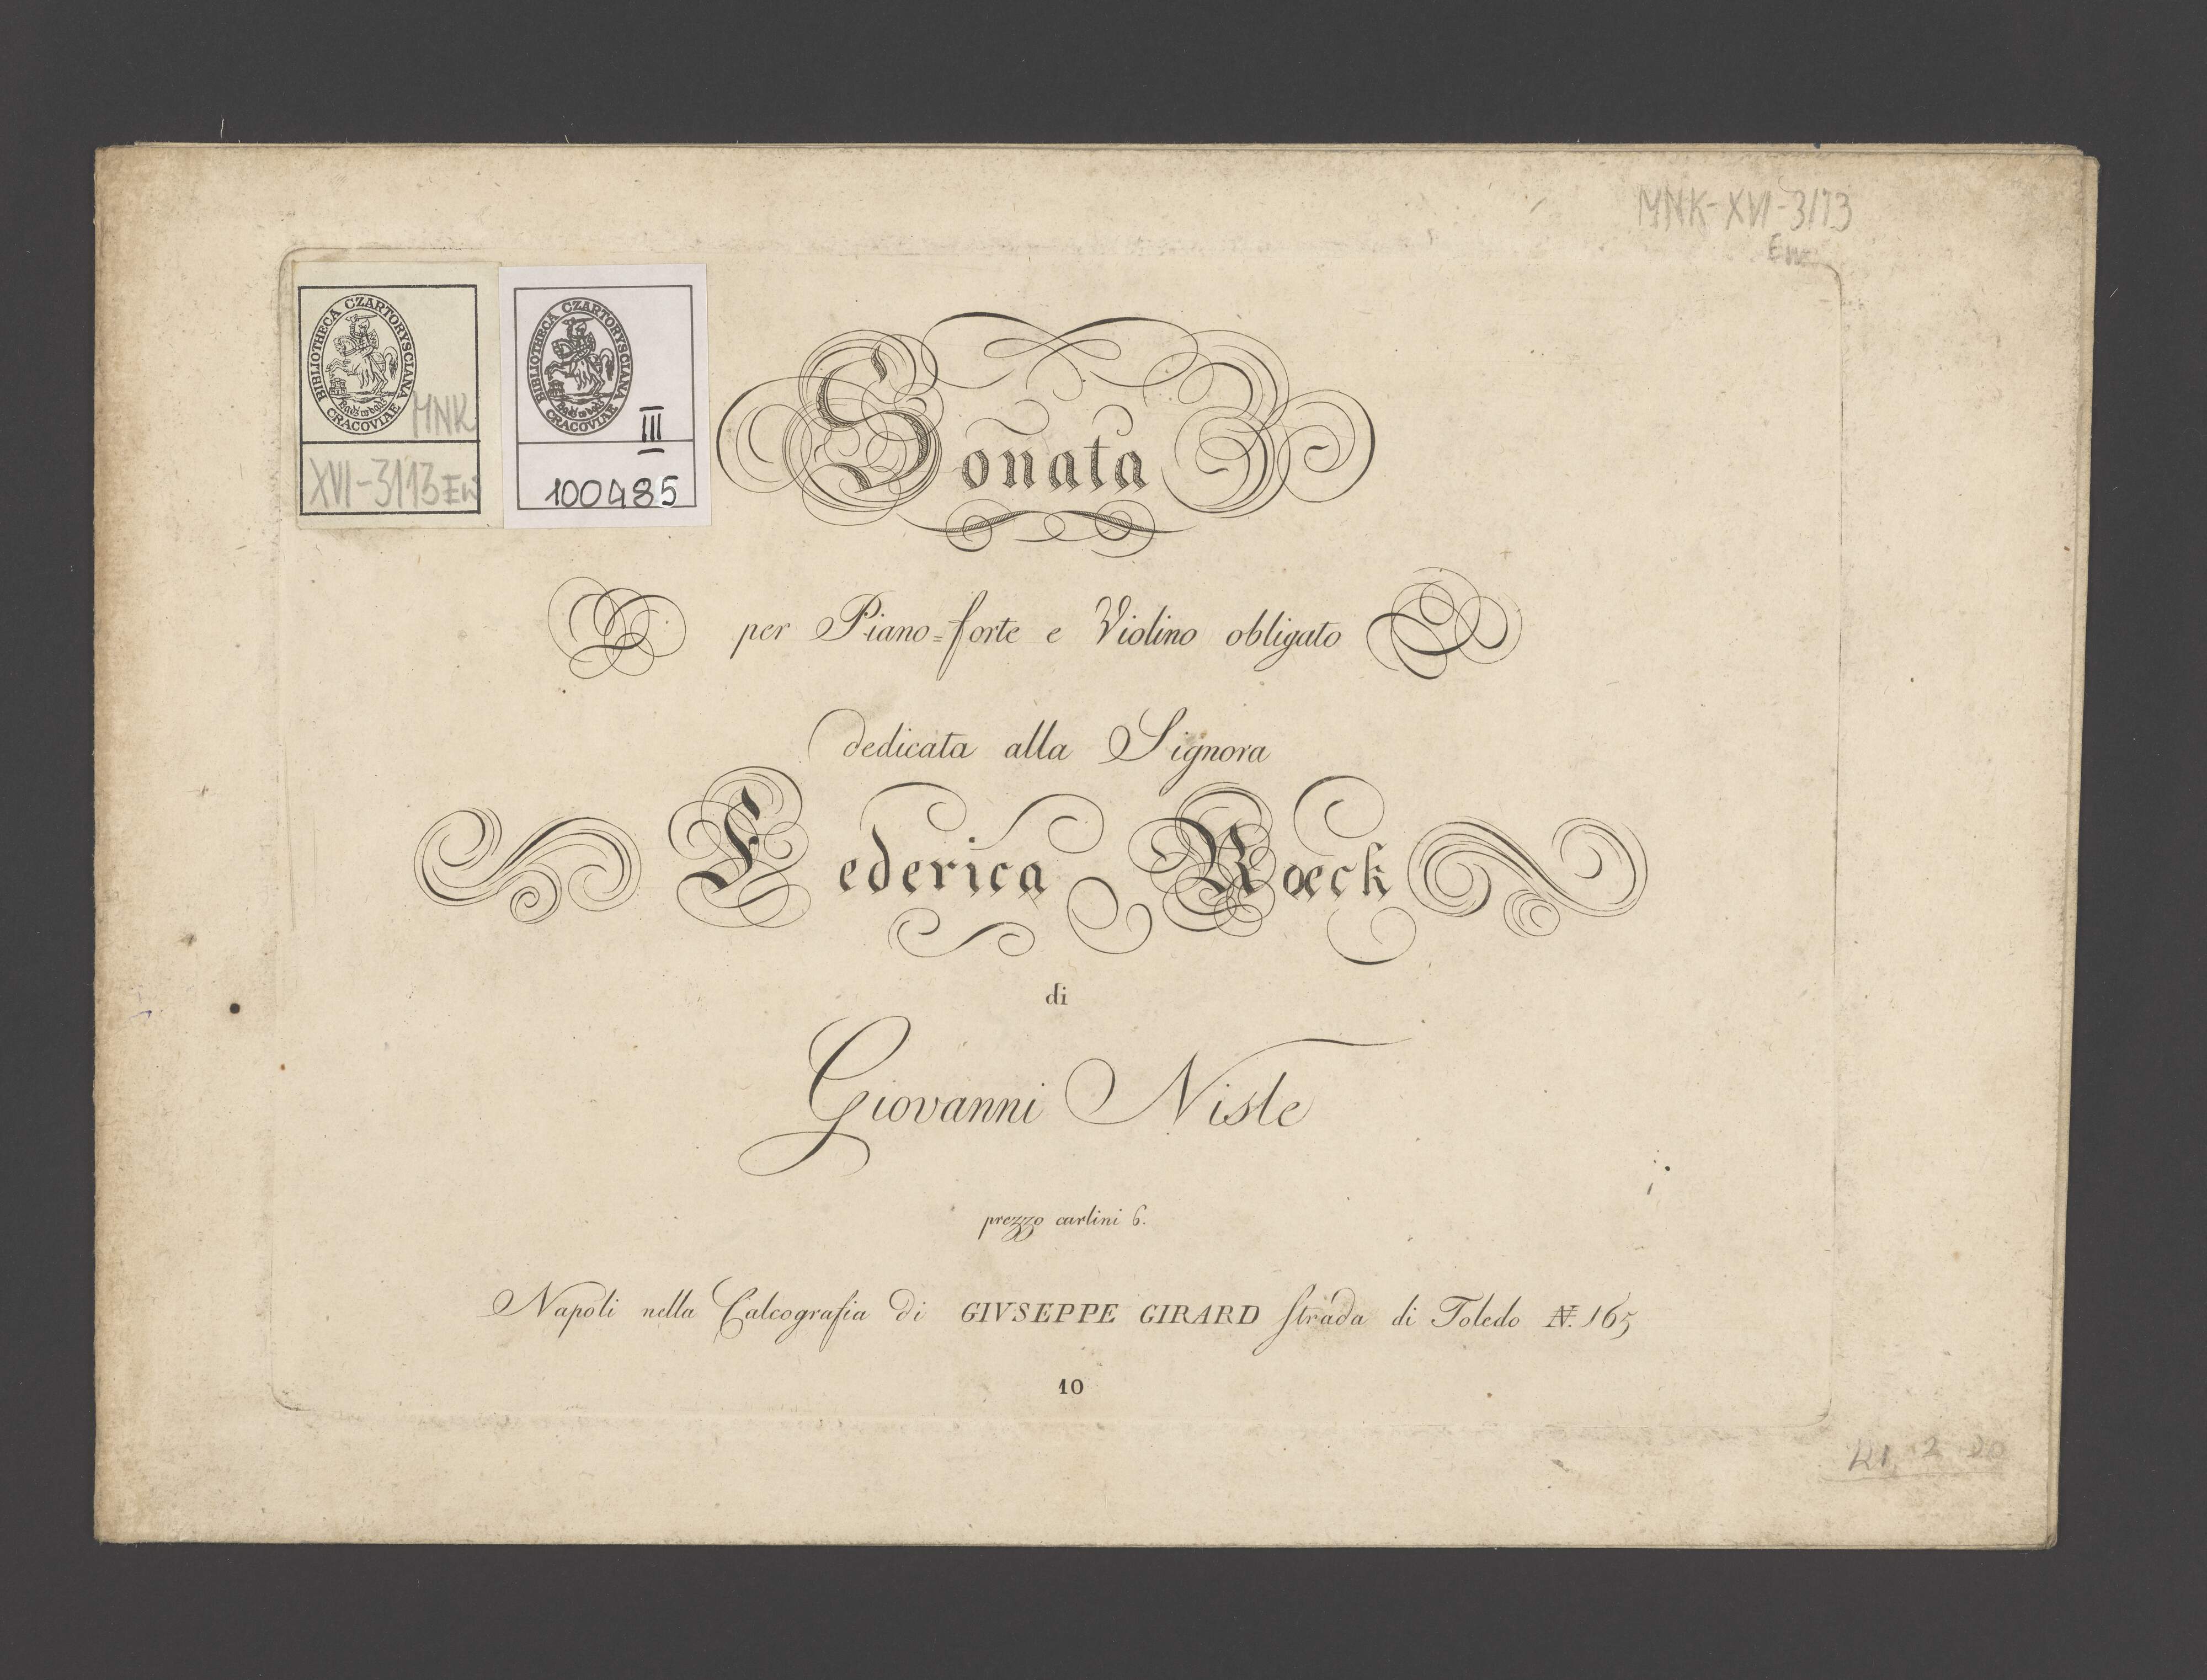 MNK-XVI-3113
Ew
BIBLIOTHECA CZARTORYSCIANA CRACOVIAE
MNK
XVI-3113 Ew
BIBLIOTHECA CZARTORYSCIANA CRACOVIAE
III
100485
Sonata
per Piano=forte e Violino obligato
dedicata alla Signora
Federica Rœck
di
Giovanni Nisle
prezzo carlini 6.
Napoli nella Calcografia di GIVSEPPE GIRARD strada di Toledo N. 165
10